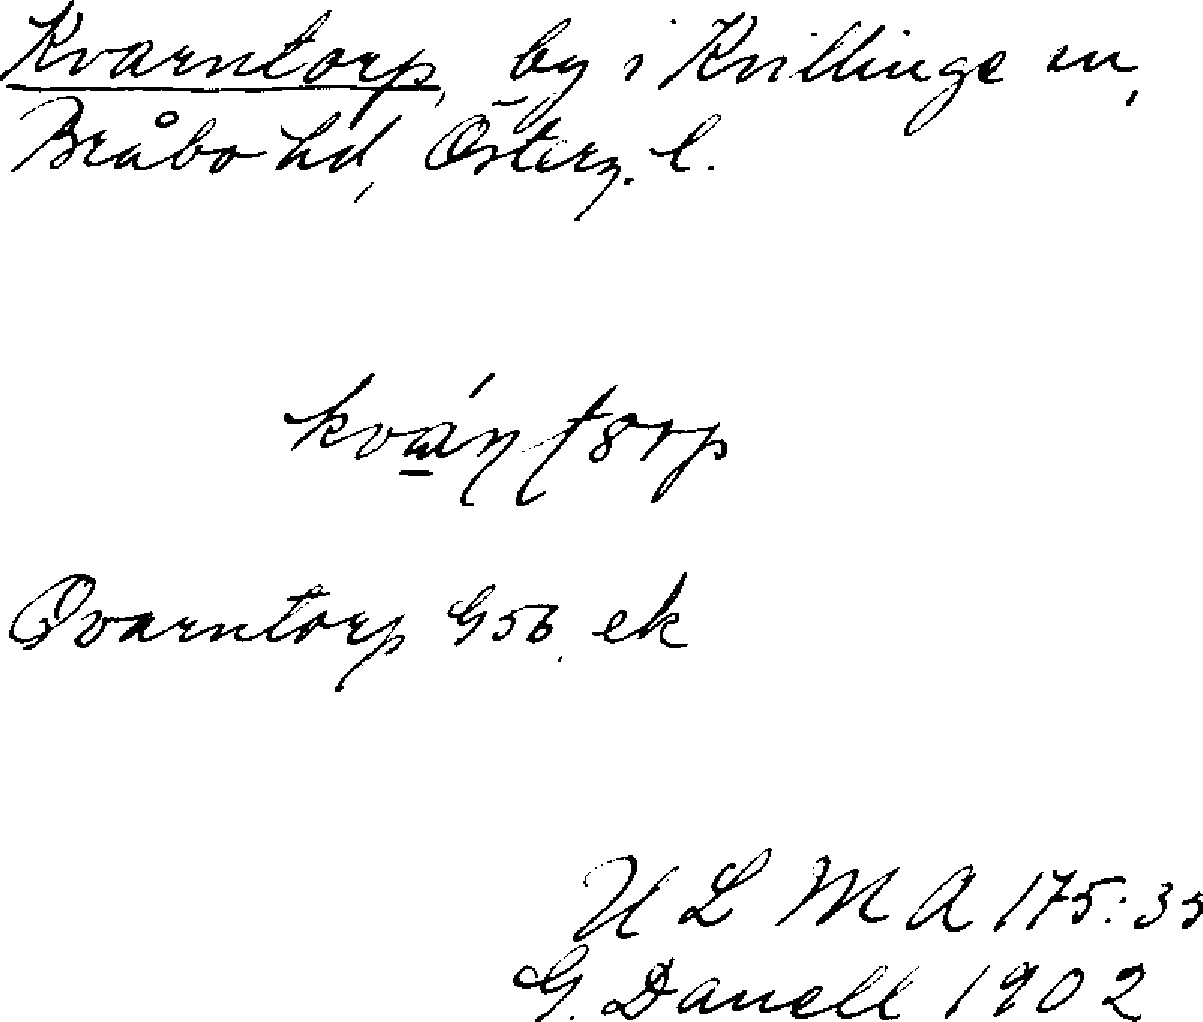 Kvarntorp, by i Kvillinge sn,
Bråbo hd, Österg. l.
Qvarntorp G56. ek
U L M A 175:35
G. Danell 1902